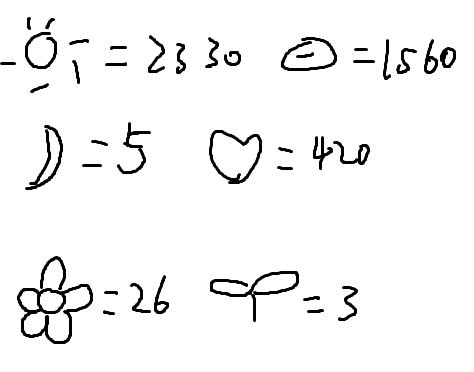 = 2330 = 1560
= 5 = 420
= 26 = 3